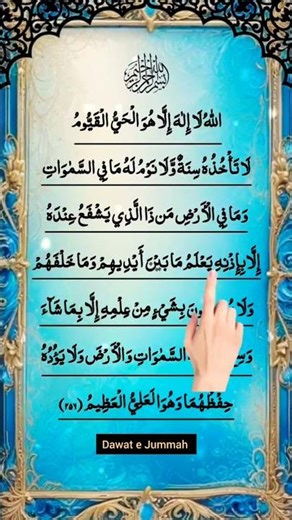 بسم الله الرحمن الرحيم
اللهُ لَا إِلٰهَ إِلَّا هُوَ الْحَيُّ الْقَيُّومُ
لَا تَأْخُذُهُ سِنَةٌ وَّلَا نَوْمٌ لَهُ مَا فِي السَّمٰوَاتِ
وَمَا فِي الْأَرْضِ مَن ذَا الَّذِي يَشْفَعُ عِنْدَهُ
إِلَّا بِإِذْنِهِ يَعْلَمُ مَا بَيْنَ أَيْدِيهِمْ وَمَا خَلْفَهُمْ
وَلَا بِشَيْءٍ مِنْ عِلْمِهِ إِلَّا بِمَا شَاءَ
السَّمٰوَاتِ وَالْأَرْضَ وَلَا يَؤُدُهُ
حِفْظُهُمَا وَهُوَ الْعَلِيُّ الْعَظِيمُ (٢٥٦)
Dawat e Jummah